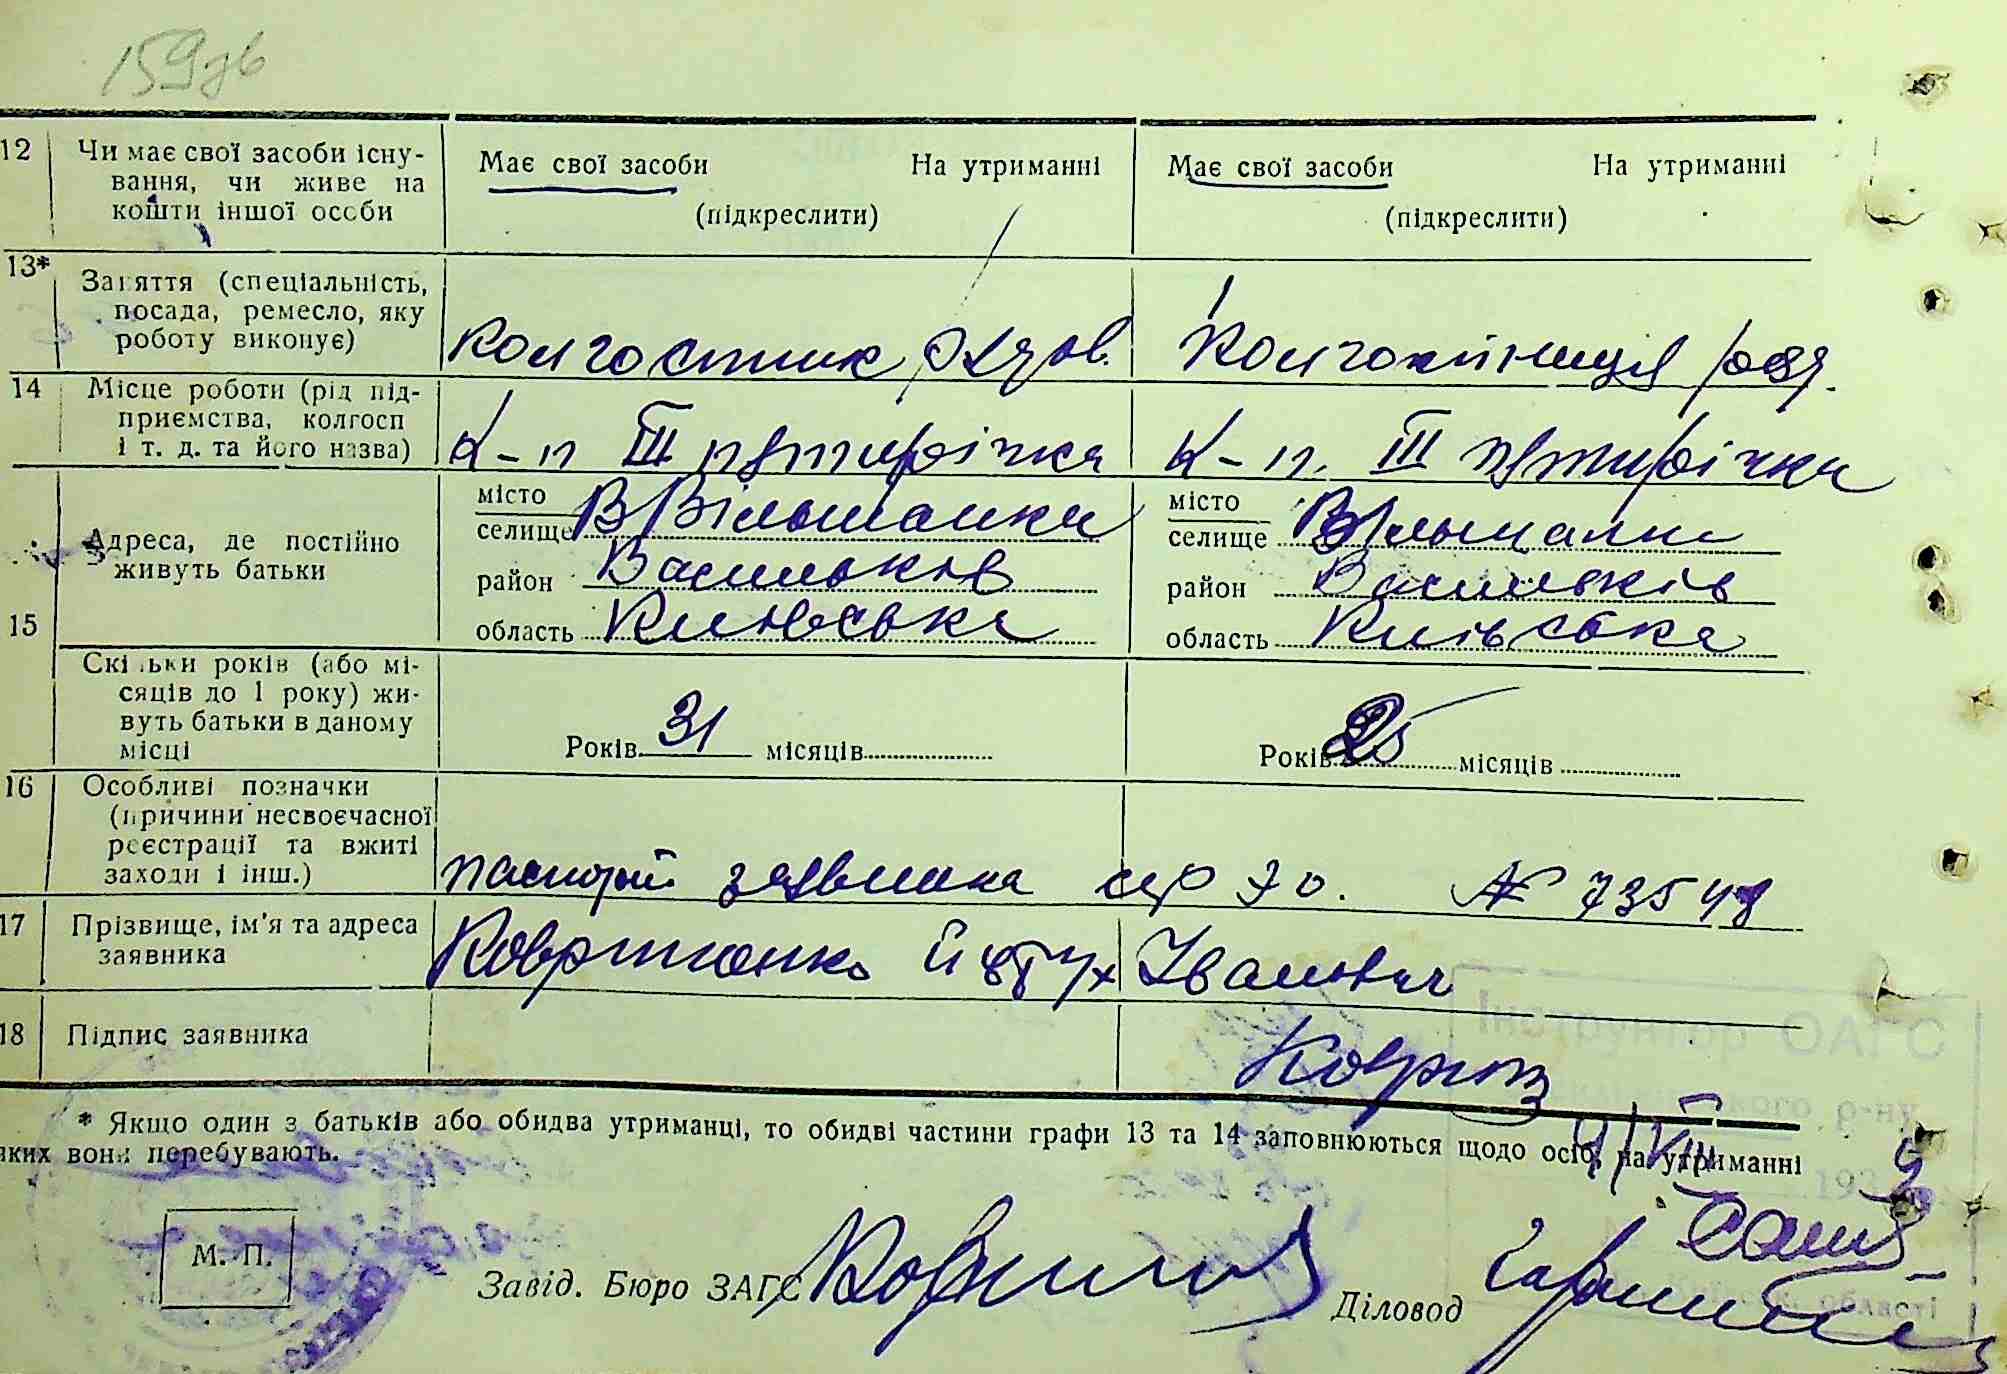 159зв
12 Чи має свої засоби існу-
вання, чи живе на
кошти іншої особи
Має свої засоби На утриманні
(підкреслити)
Має свої засоби На утриманні
(підкреслити)
13* Заняття (спеціальність,
посада, ремесло, яку
роботу виконує)
колгоспник рядов.
колгоспниця ряд.
14 Місце роботи (рід під-
приємства, колгосп
і т. д. та його назва)
К-п III пятирічка
К-п. III пятирічки
15 Адреса, де постійно
живуть батьки
місто
селище В Вільшанка
район Васильків
область Київська
місто
селище В Вільшанка
район Васильків
область Київська
Скільки років (або мі-
сяців до 1 року) жи-
вуть батьки в даному
місці
Років 31 місяців
Років 25 місяців
16 Особливі позначки
(причини несвоєчасної
реєстрації та вжиті
заходи і інш.)
паспорт заявника сер № 73548
17 Прізвище, ім'я та адреса
заявника
Іванович
18 Підпис заявника
* Якщо один з батьків або обидва утриманці, то обидві частини графи 13 та 14 заповнюються щодо осіб, на утриманні
яких вони перебувають.
Інструктор ОАГС
р-ну
9/VIII 1939
області
М. П.
Завід. Бюро ЗАГС
Діловод